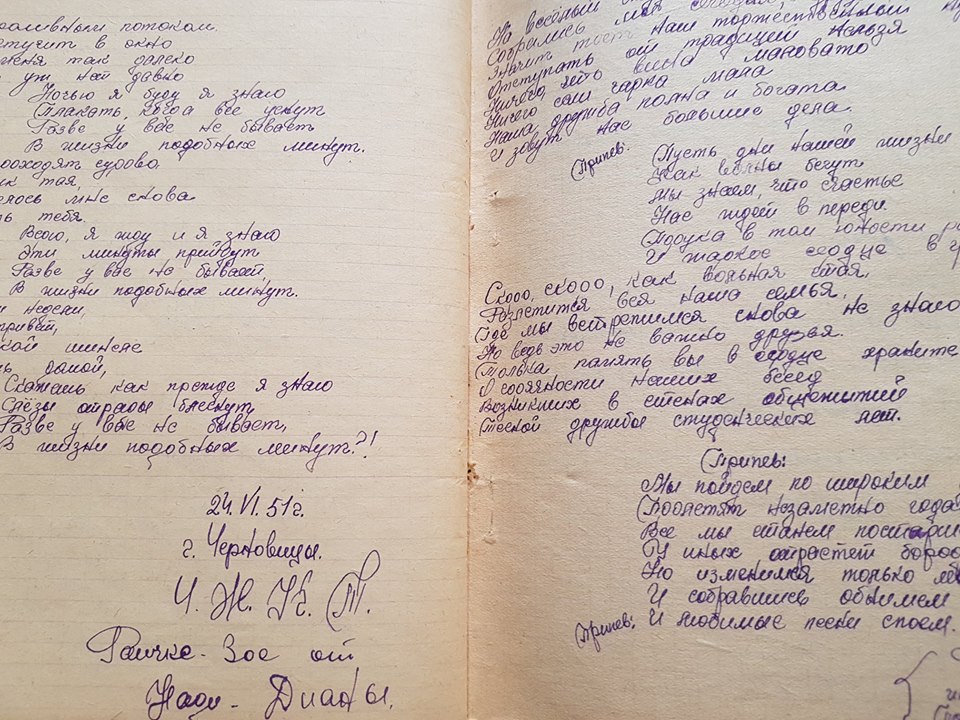 потоком
стучит в окно
так далеко
уж нет давно
Ночью я буду я знаю
Плакать, когда все уснут
Разве у вас не бывает
В жизни подобных минут.
сурово
мне снова
тебя.
Всего, я жду и я знаю
Эти минуты прийдут
Разве у вас не бывает,
В жизни подобных минут.
недели,
привет,
шинеле
домой,
Скажешь как прежде я знаю
Слёзы отрады блеснут
Разве у вас не бывает,
В жизни подобных минут?!
24.VI.51г.
г. Черновицы.
Ч. Ж. К. Т.
Раичке-Зое от
Нади-Дианы.
На весёлый
Собрались мы
Значит тост наш торжественный
Отступать от традиций нельзя
Ничего, что вина маловато
Ничего сли чарка мала
Наша дружба полна и богата
И зовут нас большие дела.
Припев:
Пусть дни нашей жизни
Как волны бегут
Мы знаем, что счастье
Нас ждет в переди
Порука в том юности
И жаркое сердце в
Скоро, скоро, как вольная стая,
Разлетится вся наша семья,
Где мы встретимся снова не знаю
Но ведь это не важно друзья.
Только память вы в сердце храните
О нашых бесед
Возникших в стенах общежитий
Тесной дружбы студенческих лет.
Припев:
Мы пойдем по широким
Пролетят незаметно года
Все мы станем
И у иных отрастет
Но изменимся только
И собравшись обнимем
Припев: И любимые песни споем.